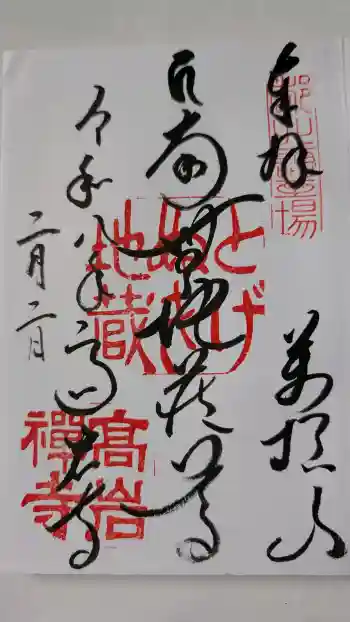 奉拝
萬頂山
延命地蔵尊
令和八年
高岩寺
二月二日
とげ
ぬき
地蔵
高岩
禅寺